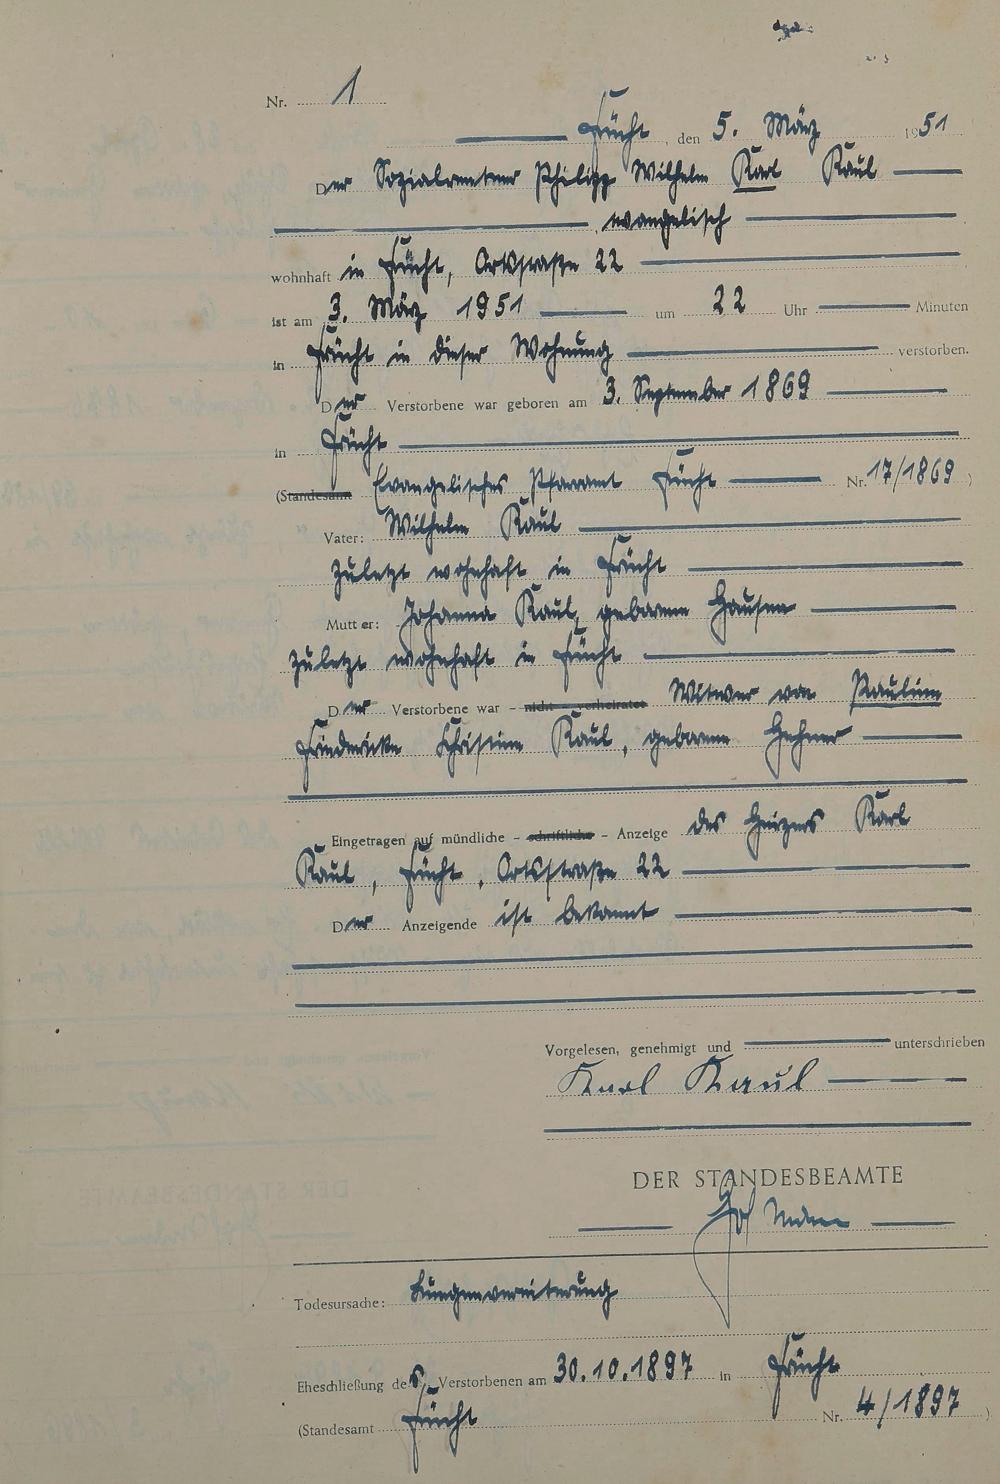 Nr. 1
Frücht, den 5. März 1951
Der Sozialrentner Philipp Wilhelm Karl Kaul
evangelisch
wohnhaft in Frücht, Ortsstraße 22
ist am 3. März 1951 um 22 Uhr Minuten
in Frücht in dieser Wohnung verstorben.
Der Verstorbene war geboren am 3. September 1869
in Frücht
(Standesamt Evangelisches Pfarramt Frücht Nr. 17/1869)
Vater: Wilhelm Kaul
zuletzt wohnhaft in Frücht
Mutter: Johanna Kaul, geborene Hausen
zuletzt wohnhaft in Frücht
Der Verstorbene war – nicht – verheiratet Witwer von Pauline
Friedericke Christine Kaul, geborene
Eingetragen auf mündliche – schriftliche – Anzeige des Heizers Karl
Kaul, Frücht, Ortsstraße 22
Der Anzeigende ist bekannt
Vorgelesen, genehmigt und unterschrieben
Karl Kaul
DER STANDESBEAMTE
Todesursache: Lungenvereiterung
Eheschließung des Verstorbenen am 30.10.1897 in Frücht
(Standesamt Frücht Nr. 4/1897)